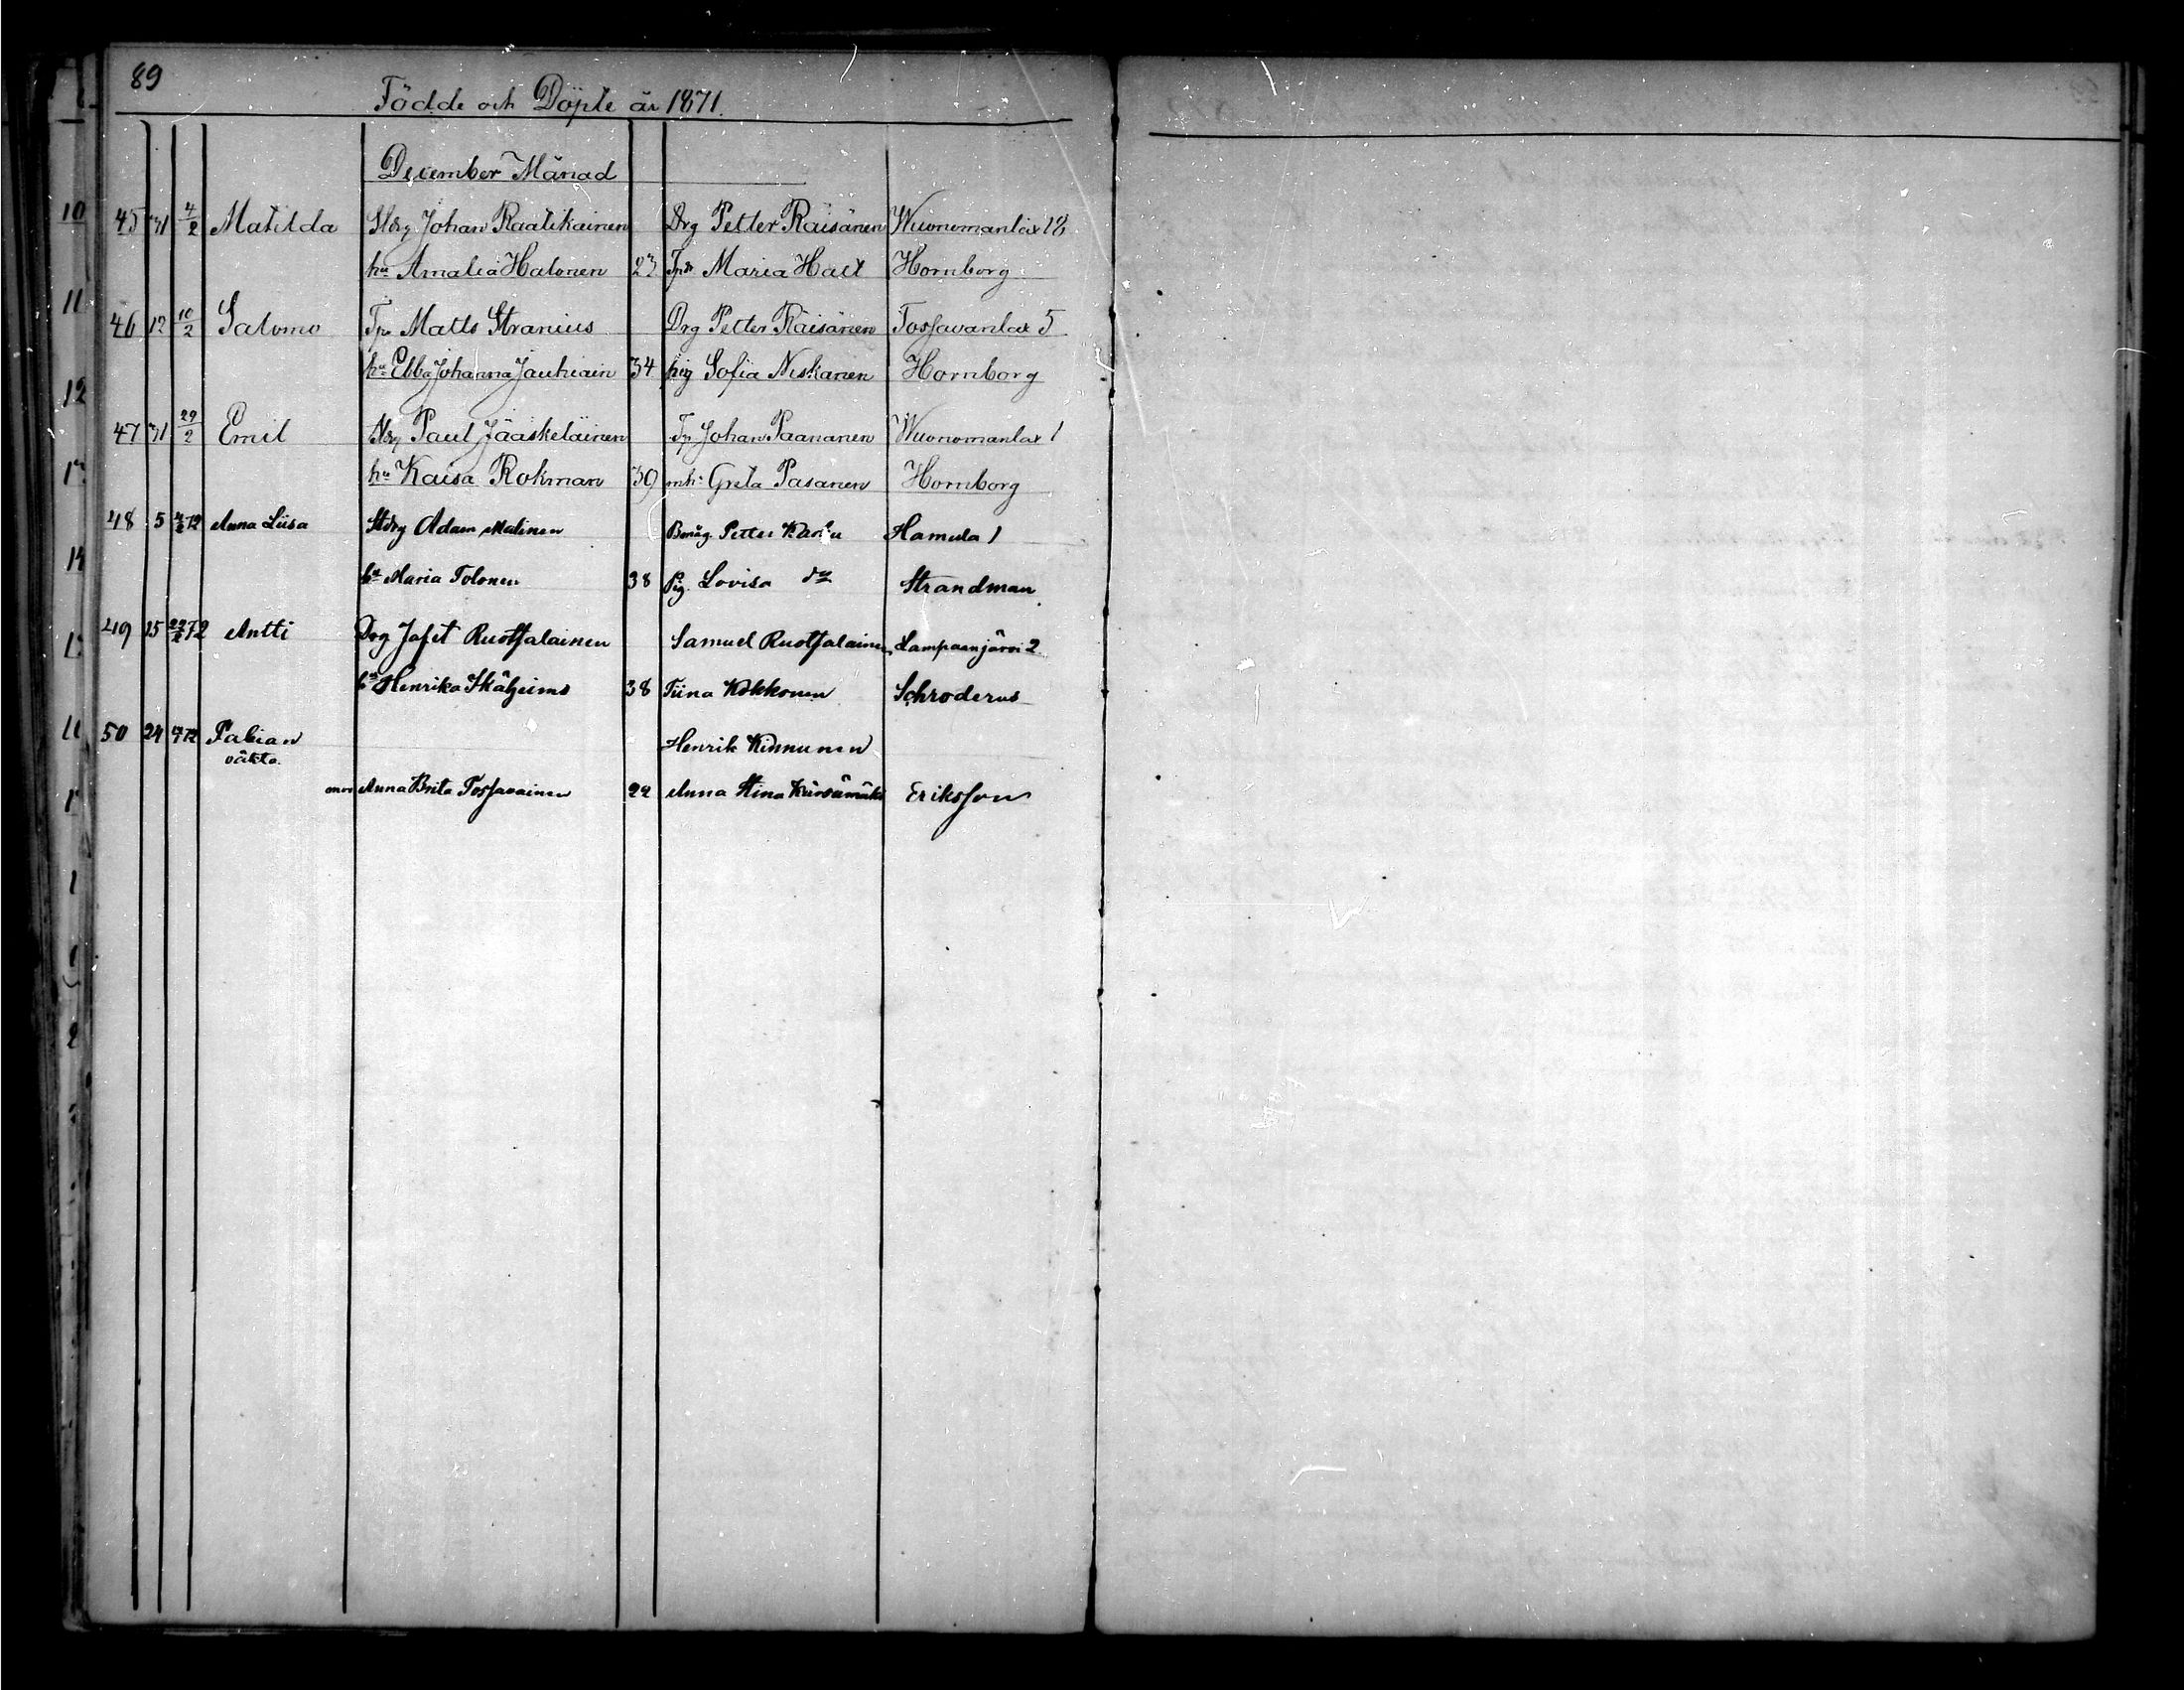 89
Födde och Döpte år 1871.
December Månad
45 31 4/2 Matilda Stdrg Johan Raatikainen Drg Petter Räisänen Wuonomanlax 18
hu Amalia Halonen 23 Maria Hall Hornborg
46 12 10/2 Salomo Tp Matts Stranius Drg Petter Räisänen Tossavanlax 5
hu Ebba Johanna Jauhiain 34 pig Sofia Niskanen Hornborg
47 31 29/2 Emil Stdrg Paul Jääskeläinen Tp Johan Paananen Wuonomanlax 1
hu Kaisa Rokman 39 Greta Pasanen Hornborg
48 5 4/2 72 Anna Liisa Stdrg Adam Malinen Petter Hamula 1
hu Maria Tolonen 38 Pig. Lovisa do Strandman
49 15 72 Antti Drg Jafet Ruotsalainen Samuel Ruotsalainen Lampaanjärvi 2
hu Henrika 38 Tiina Kokkonen Schroderus
50 24 72 Fabian Henrik Kinnunen
oäkta.
Anna Brita Tossavainen 22 Anna Stina Eriksson
10
11
12
14